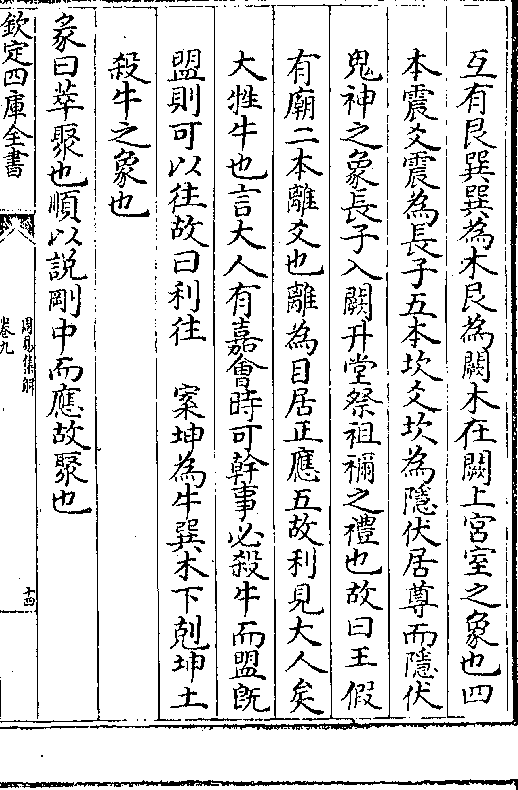 互有艮巽巽為木艮為闕木在闕上宮室之象也四
本震爻震為長子五本坎爻坎為隱伏居尊而隱伏
鬼神之象長子入闕升堂祭祖禰之禮也故曰王假
有廟二本離爻也離為目居正應五故利見大人矣
大牲牛也言大人有嘉會時可幹事必殺牛而盟既
盟則可以往故曰利往　案坤為牛巽木下剋坤土
殺牛之象也
彖曰萃聚也順以説剛中而應故聚也
欽定四庫全書
周易集解
卷九
十四